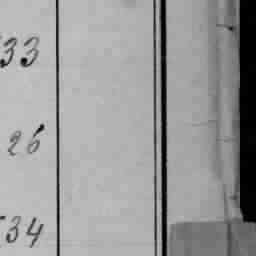 33
26
34